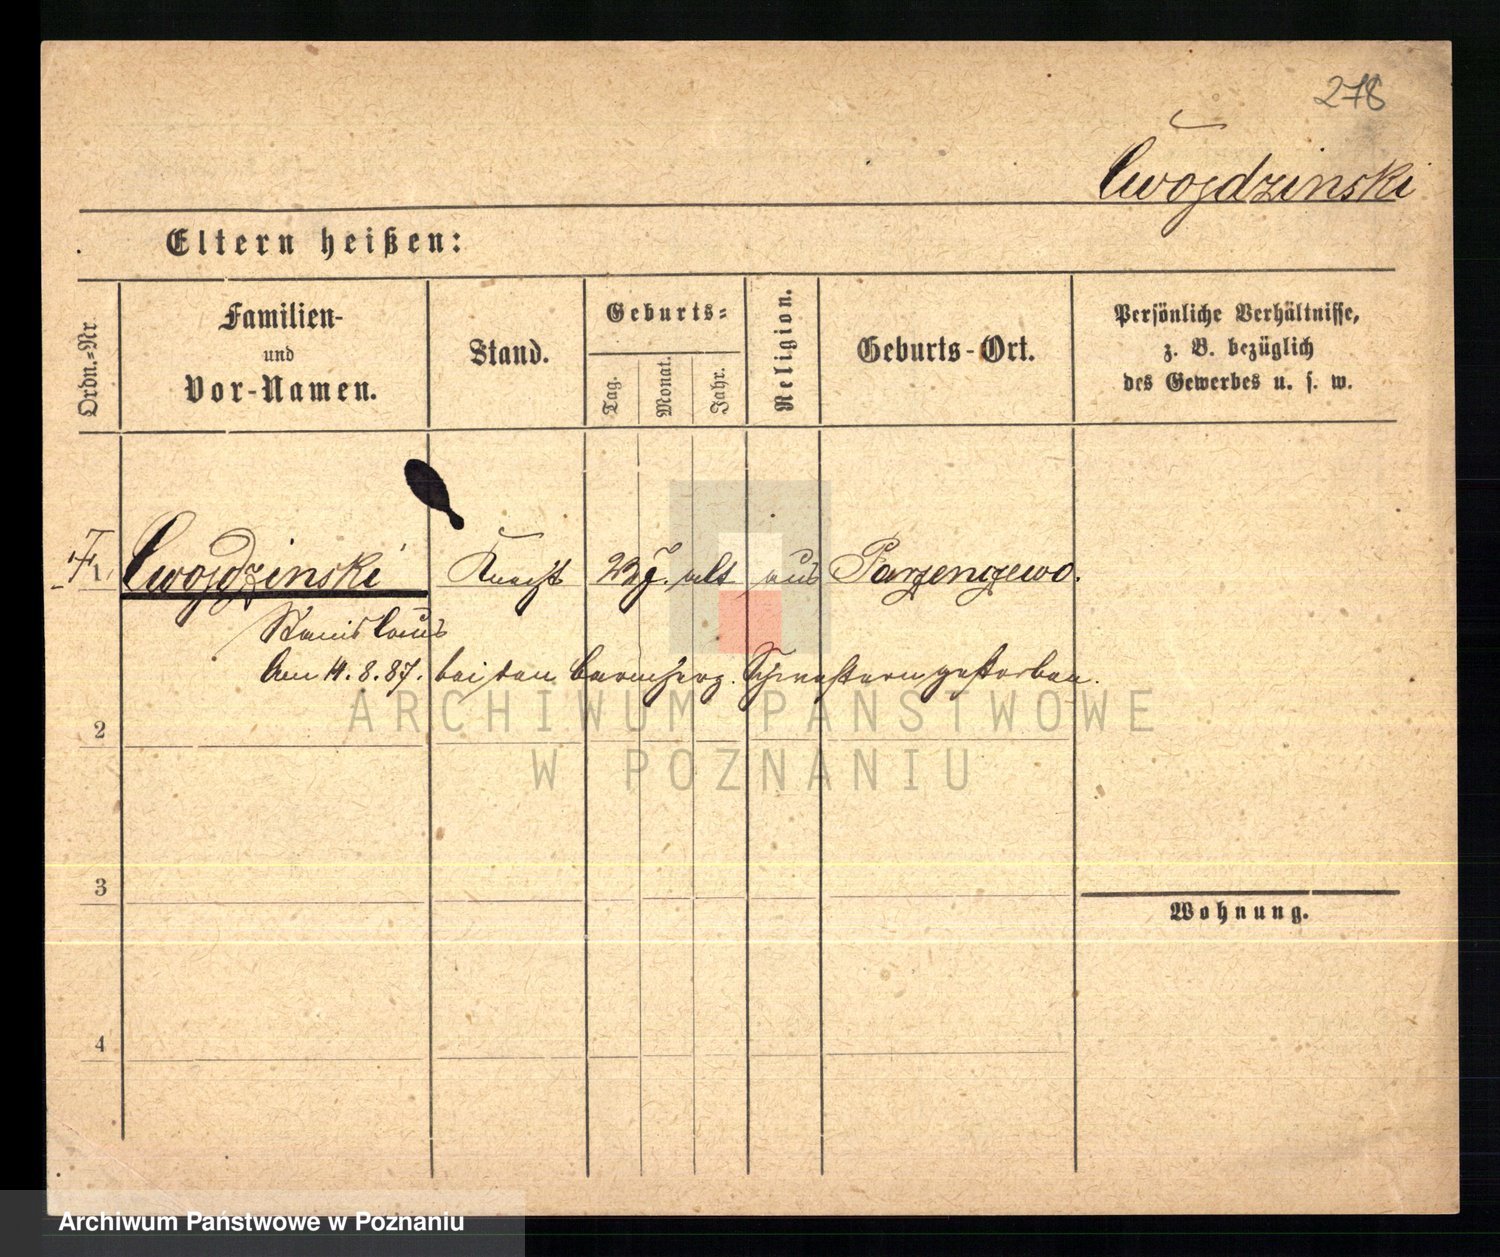 278
Cwojdzinski
Eltern heißen:
Ordn.-Nr.
Familien-
und
Vor-Namen.
Stand.
Geburts-
Tag.
Monat.
Jahr.
Religion.
Geburts-Ort.
Persönliche Verhältnisse,
z. B. bezüglich
des Gewerbes u. s. w.
1 Cwojdzinski Knecht 22 J. alt aus Parzenczewo.
Stanislaus
Am 4.8.87. bei den barmherz. Schwestern gestorben.
ARCHIWUM PAŃSTWOWE
W POZNANIU
2
3
Wohnung.
4
Archiwum Państwowe w Poznaniu